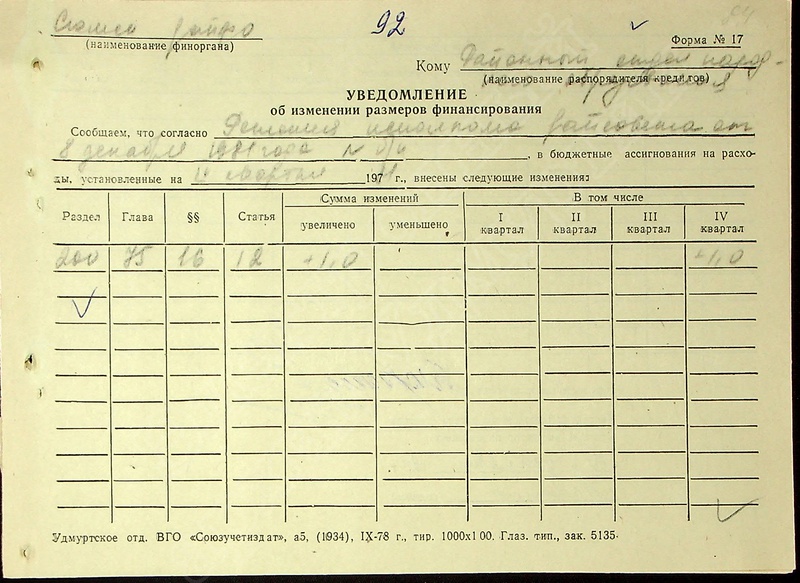 Сюмси райфо 92 84
(наименование финоргана) Форма № 17
Кому Районный отдел народ-
(наименование распорядителя кредитов) образования
УВЕДОМЛЕНИЕ
об изменении размеров финансирования
Сообщаем, что согласно Решения исполкома райсовета от
8 декабря 1981 года № , в бюджетные ассигнования на расхо-
ды, установленные на квартал 197 г., внесены следующие изменения:
Раздел Глава §§ Статья Сумма изменений В том числе
увеличено уменьшено I квартал II квартал III квартал IV квартал
200 75 16 12 +1,0 +1,0
Удмуртское отд. ВГО «Союзучетиздат», а5, (1934), IX-78 г., тир. 1000х100. Глаз. тип., зак. 5135.